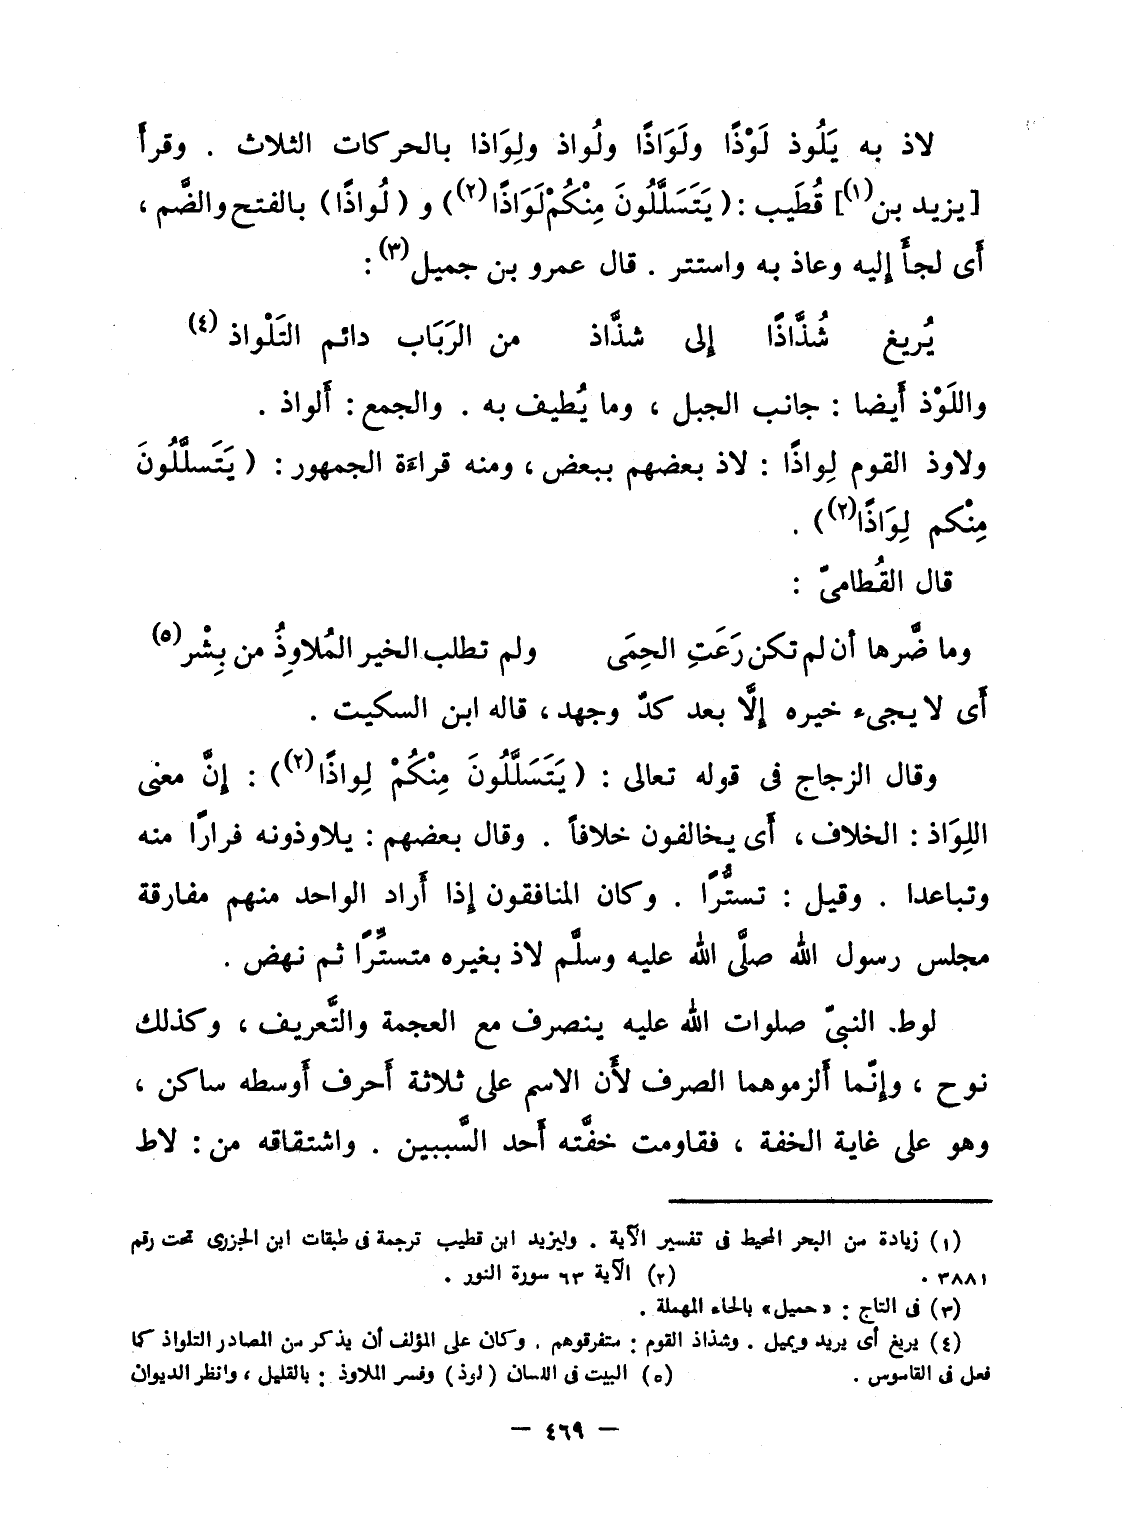 لاذ به يَلُوذ لَوْذًا ولَوَاذًا ولُواذ ولِوَاذا بالحركات الثلاث . وقرأَ
[يزيد بن(١)] قُطَيب : (يَتَسَلَّلُونَ مِنْكُمْ لَوَاذًا(٢)) و (لُواذًا) بالفتح والضَّم ،
أَى لجأَ إليه وعاذ به واستتر . قال عمرو بن جميل(٣) :
يُريغ شُذَّاذًا إلى شذَّاذ من الرَبَاب دائم التَلْواذ (٤)
واللَوْذ أَيضا : جانب الجبل ، وما يُطيف به . والجمع : أَلواذ .
ولاوذ القوم لِواذًا : لاذ بعضهم ببعض ، ومنه قراءَة الجمهور : (يَتَسلَّلُونَ
مِنْكم لِوَاذًا(٢)) .
قال القُطامىّ :
وما ضَّرها أن لم تكن رَعَتِ الحِمَى ولم تطلب الخير المُلاوِذُ من بِشْر(٥)
أَى لا يجىء خيره إلَّا بعد كدّ وجهد ، قاله ابن السكيت .
وقال الزجاج فى قوله تعالى : (يَتَسَلَّلُونَ مِنْكُمْ لِواذًا(٢)) : إنَّ معنى
اللِوَاذ : الخلاف ، أَى يخالفون خلافاً . وقال بعضهم : يلاوذونه فرارًا منه
وتباعدا . وقيل : تستُّرًا . وكان المنافقون إذا أَراد الواحد منهم مفارقة
مجلس رسول الله صلَّى الله عليه وسلَّم لاذ بغيره متستِّرًا ثم نهض .
لوط. النبىّ صلوات الله عليه ينصرف مع العجمة والتَّعريف ، وكذلك
نوح ، وإنّما أَلزموهما الصرف لأَن الاسم على ثلاثة أَحرف أَوسطه ساكن ،
وهو على غاية الخفة ، فقاومت خفَّته أَحد السَّببين . واشتقاقه من : لاط
(١) زيادة من البحر المحيط فى تفسير الآية . وليزيد ابن قطيب ترجمة فى طبقات ابن الجزرى تحت رقم
٣٨٨١ . (٢) الآية ٦٣ سورة النور .
(٣) فى التاج : «حميل» بالحاء المهملة .
(٤) يريغ أى يريد ويميل . وشذاذ القوم : متفرقوهم . وكان على المؤلف أن يذكر من المصادر التلواذ كما
فعل فى القاموس . (٥) البيت فى اللسان (لوذ) وفسر الملاوذ : بالقليل ، وانظر الديوان
— ٤٦٩ —